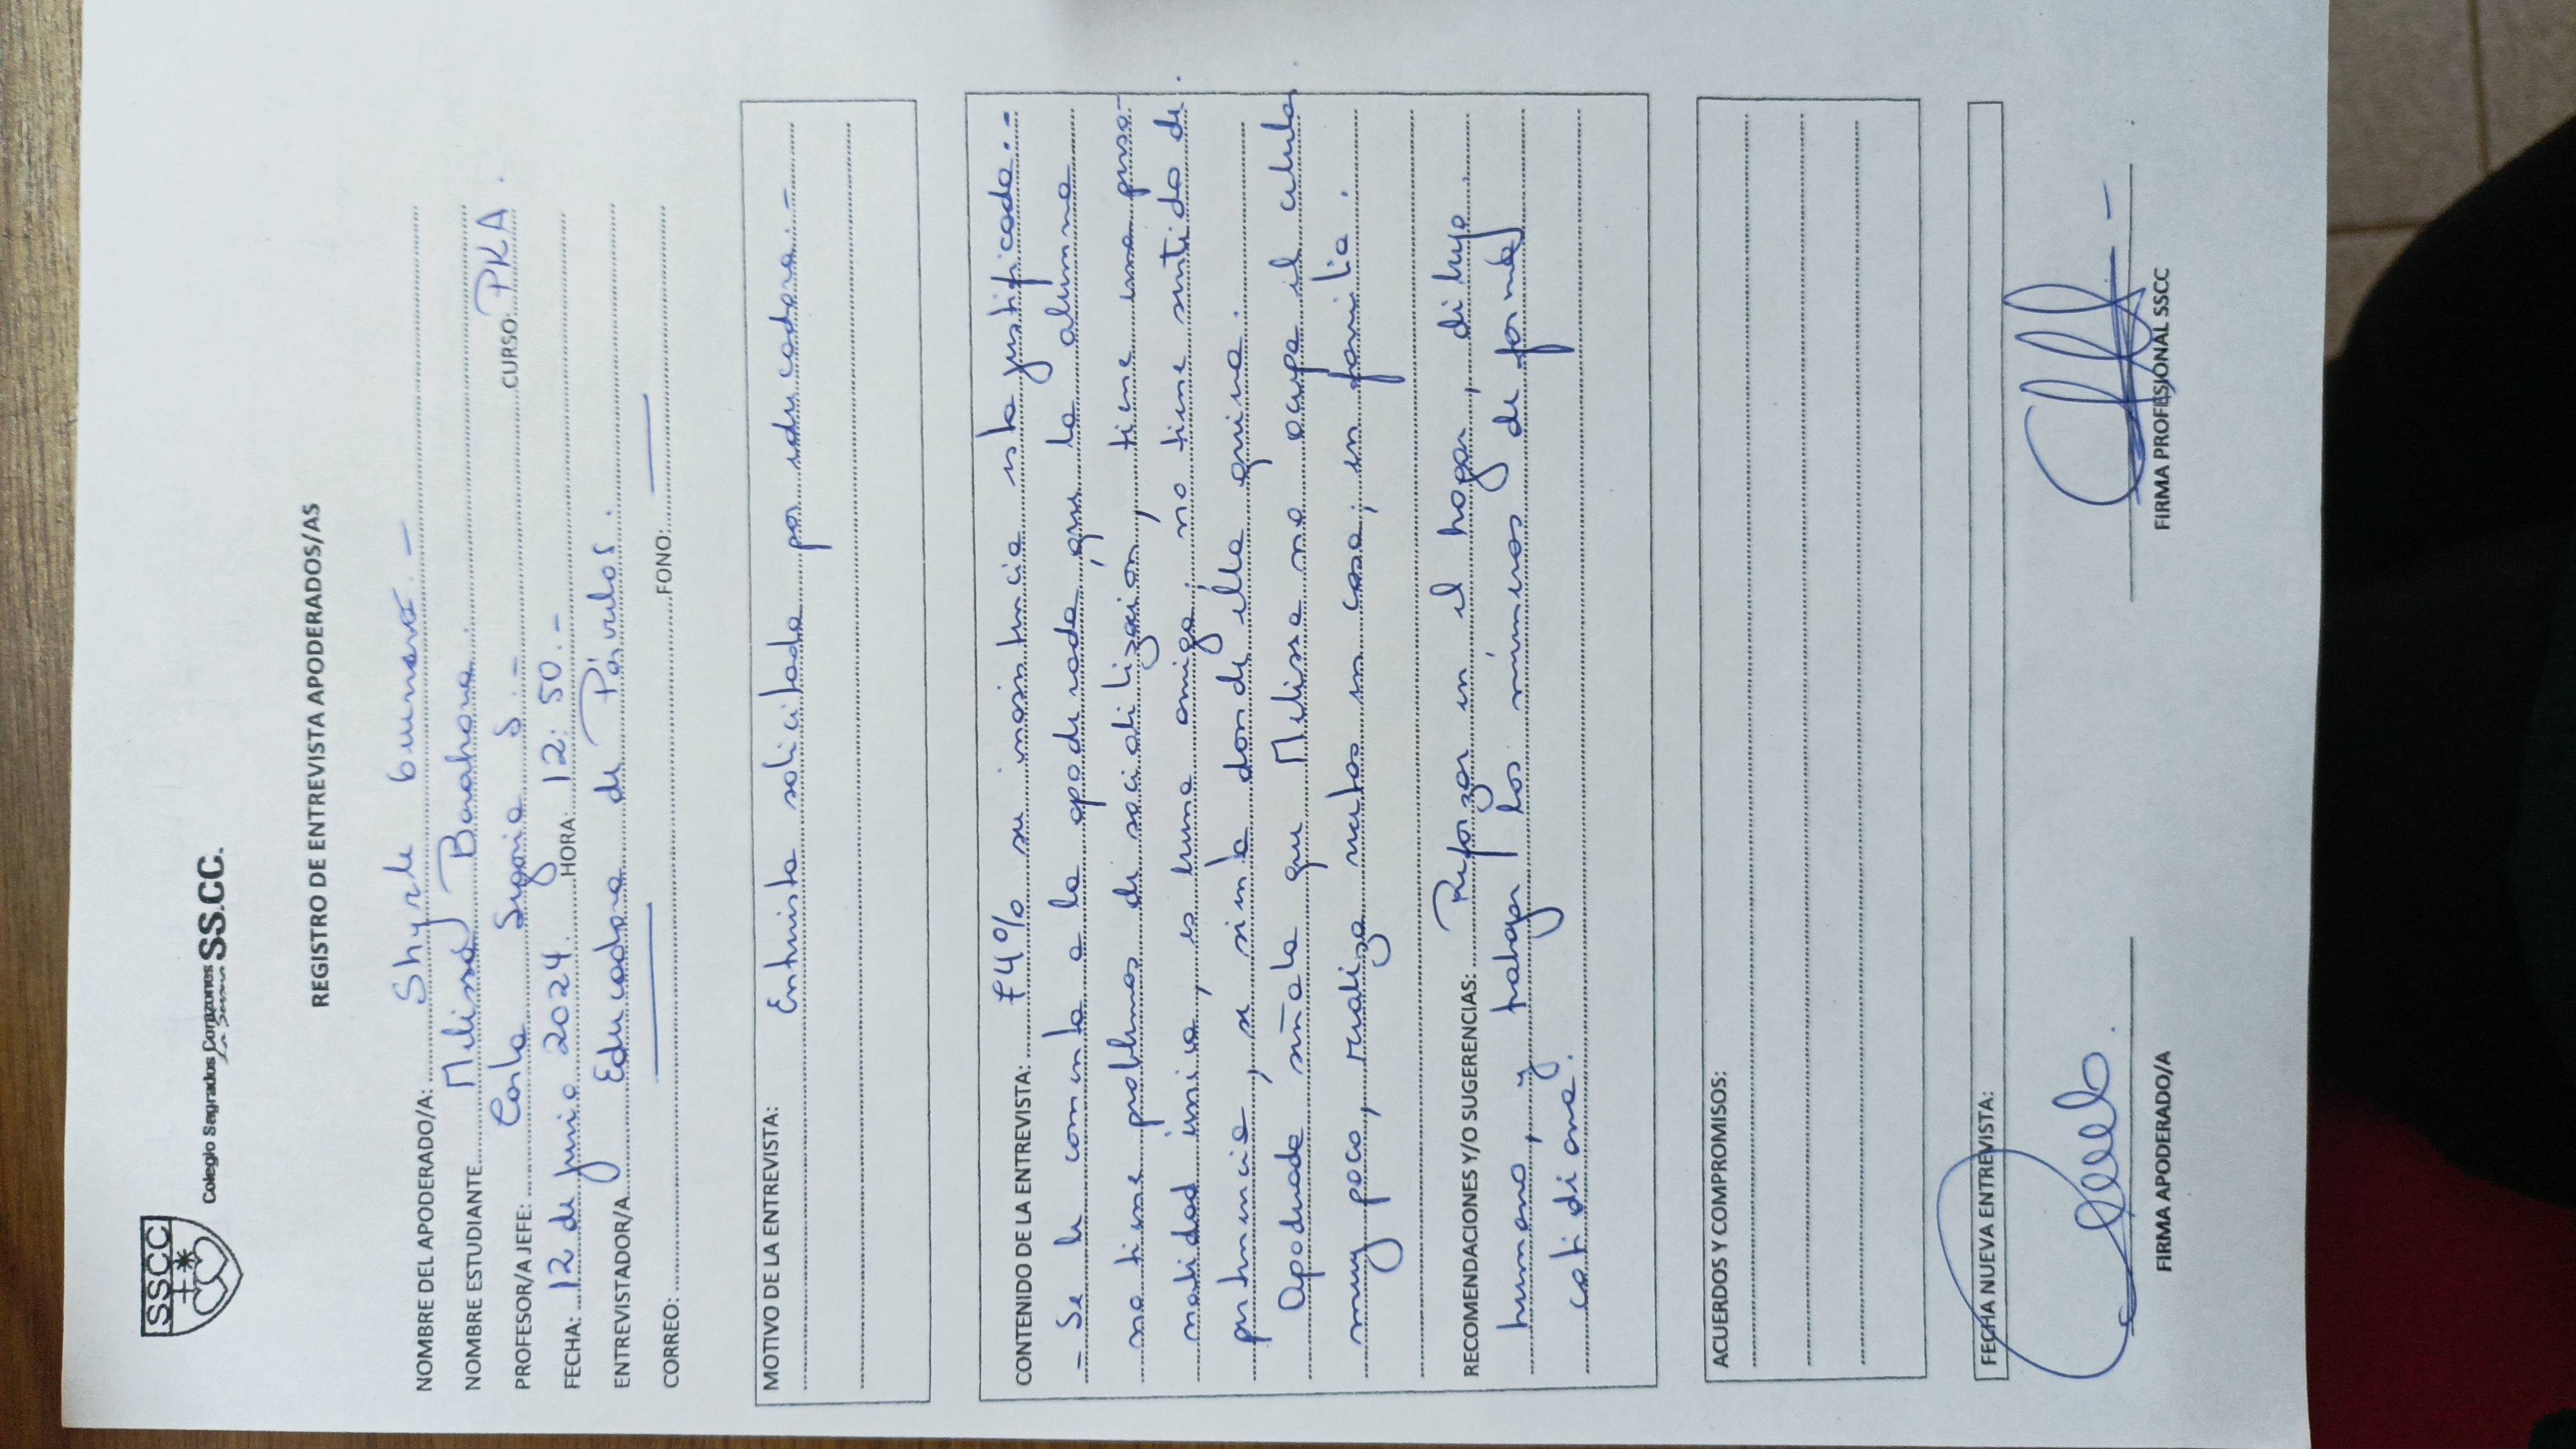 SSCC
Colegio Sagrados Corazones SS.CC.
La Serena
REGISTRO DE ENTREVISTA APODERADOS/AS
NOMBRE DEL APODERADO/A: Shyrle
NOMBRE ESTUDIANTE Melissa Barahona.
PROFESOR/A JEFE: Carla Segovia S.- CURSO: PKA.
FECHA: 12 de junio 2024. HORA: 12:50.-
ENTREVISTADOR/A Educadora de Párvulos.
CORREO: FONO:
MOTIVO DE LA ENTREVISTA: Entrevista solicitada por educadora.-
CONTENIDO DE LA ENTREVISTA: su inasistencia esta justificada.-
- Se le comenta a la apoderada, que la alumna
no tiene problemas de sociabilización, tiene una perso-
nalidad única, es buena amiga, no tiene sentido de
pertenencia, se sienta donde ella quiera.
Apoderada señala que Melissa no ocupa el celular
muy poco, realiza en casa, en familia.
RECOMENDACIONES Y/O SUGERENCIAS: Reforzar en el hogar, dibujo
humano, y trabajar los números de forma
cotidiana.
ACUERDOS Y COMPROMISOS:
FECHA NUEVA ENTREVISTA:
FIRMA APODERADO/A FIRMA PROFESIONAL SSCC